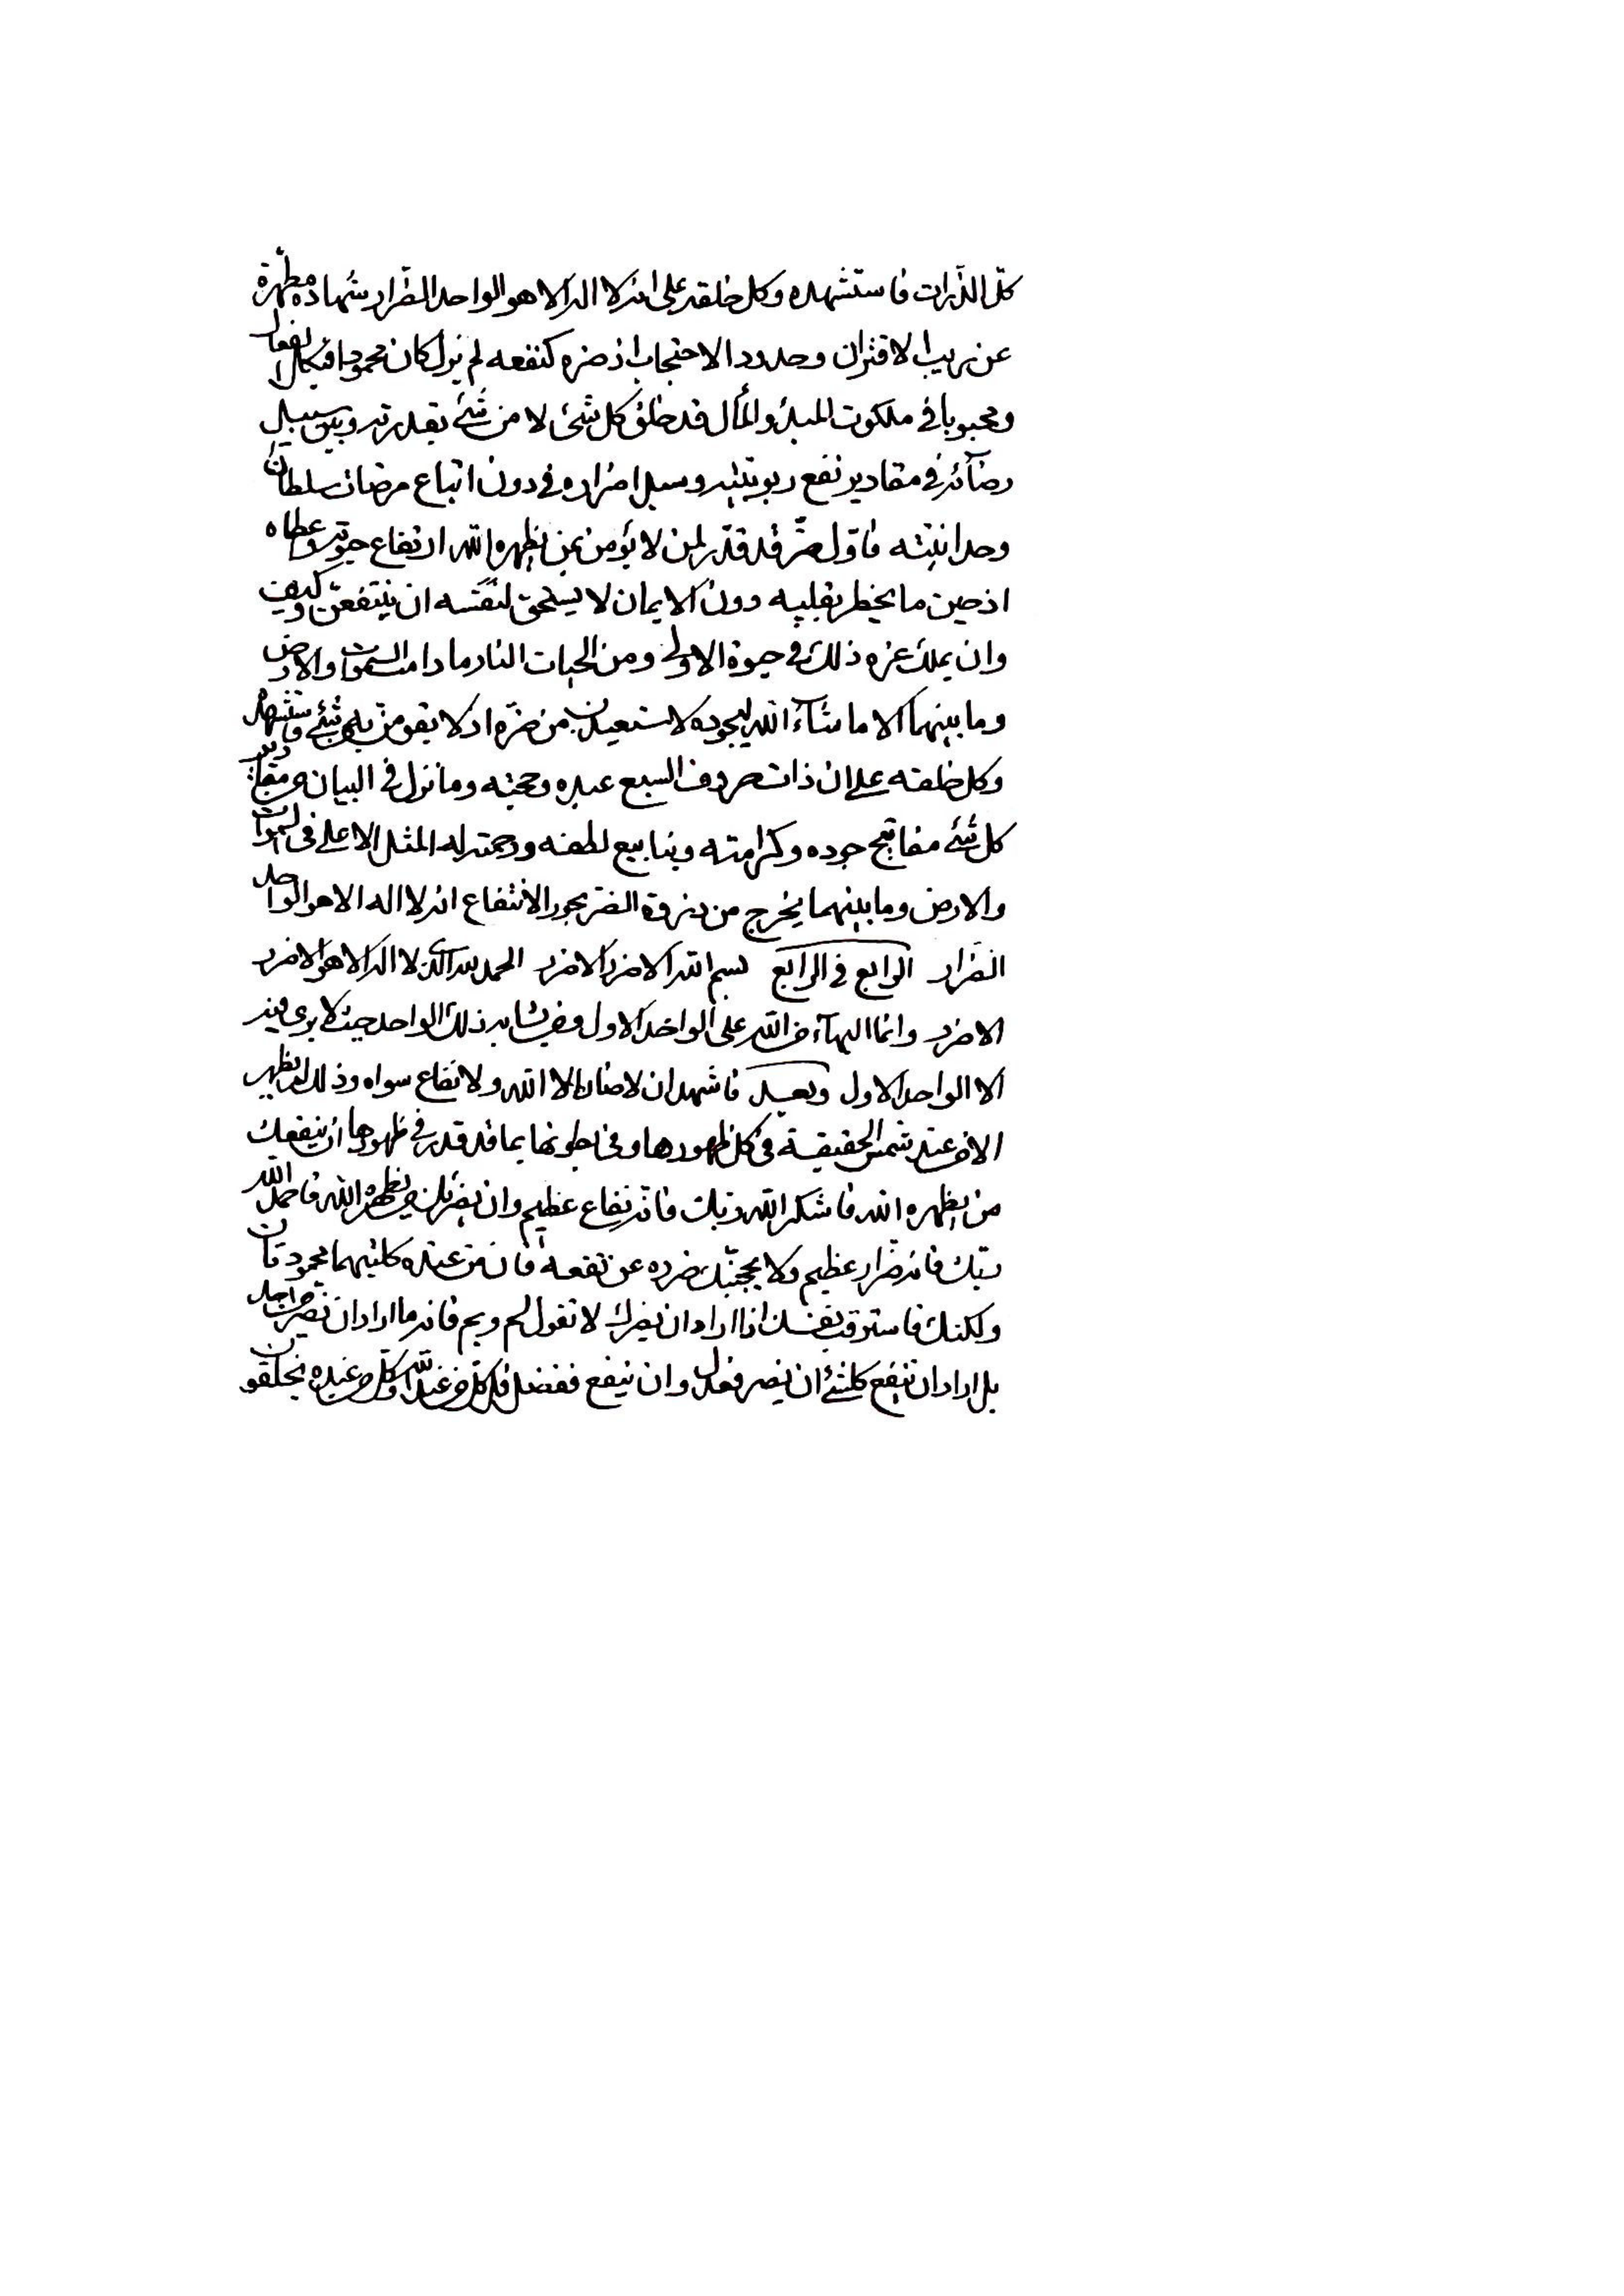 كلّ الذّرات فاستشهده وكل خلقه على انه لا اله الا هو الواحد الضّرار شهادة مطهرة
عن ريب الاقتران وحدود الاحتجاب اذ ضره كنفعه لم يزل كان محمودا فيكل الفعال
ومحبوبا في ملكوت المبدئ والمأل قد خلق كل شئ لا من شئ بقدرته وبيّن سبيل
رضآئه في مقادير نفع ربوبيّته وسبل اضراره في دون اتباع مرضات سلطان
وحدانيته فاوّل ضرّ قد قدّر لمن لا يؤمن بمن يظهره الله ارتفاع حيوته وعطاه
اذ حين ما يخطر بقلبه دون الايمان لا يستحق لنفسه ان ينتفعن وكيف
وان يملك غيره ذلك في حيوة الاولى ومن الحيات النار ما دامت السموات والارض
وما بينهما الا ما شآء الله بجوده لاستعيذن من ضرّه اذ لا يقومن به من شئ فاستشهد
وكل خلقه على ان ذات حروف السبع عبده وحجته وما نزل في البيان مقادير
كل شئ مفاتيح جوده وكرامته وينابيع لطفه ورحمته له المثل الاعلى في السموات
والارض وما بينهما يخرج من ذروة الضر بحور الانتفاع انه لا اله الا هو الواحد
الضّرار الرابع في الرابع بسم الله الاضرد الاضرد الحمد لله الذي لا اله الا هو الاضرد
الاضرد وانما البهآء من الله على الواحد الاول ومن يشابه ذلك الواحد حيث لا يرى فيه
الا الواحد الاول وبعد فاشهد ان لا ضار الا الله ولا نفاع سواه وذلك لم يظهر
الا من عند شمس الحقيقة في كل ظهورها وفي بطونها بما قد قدر في ظهورها ان ينفعك
من يظهره الله فاشكر الله ربك فانه نفاع عظيم وان يضرنك من يظهره الله فاحمد الله
ربك فانه ضرّار عظيم ولا يحجبنّك ضرده عن نفعه فان من عنده كلتيهما محمودتان
ولكنك فاسترقب بنفسك اذا اراد ان يضرك لا تقول لم وبم فانه ما اراد ان يضر من احد
بل اراد ان ينفع كلشئ ان يضر فعدل وان ينفع ففضل قل كل من عند الله وكل من عنده يخلقون